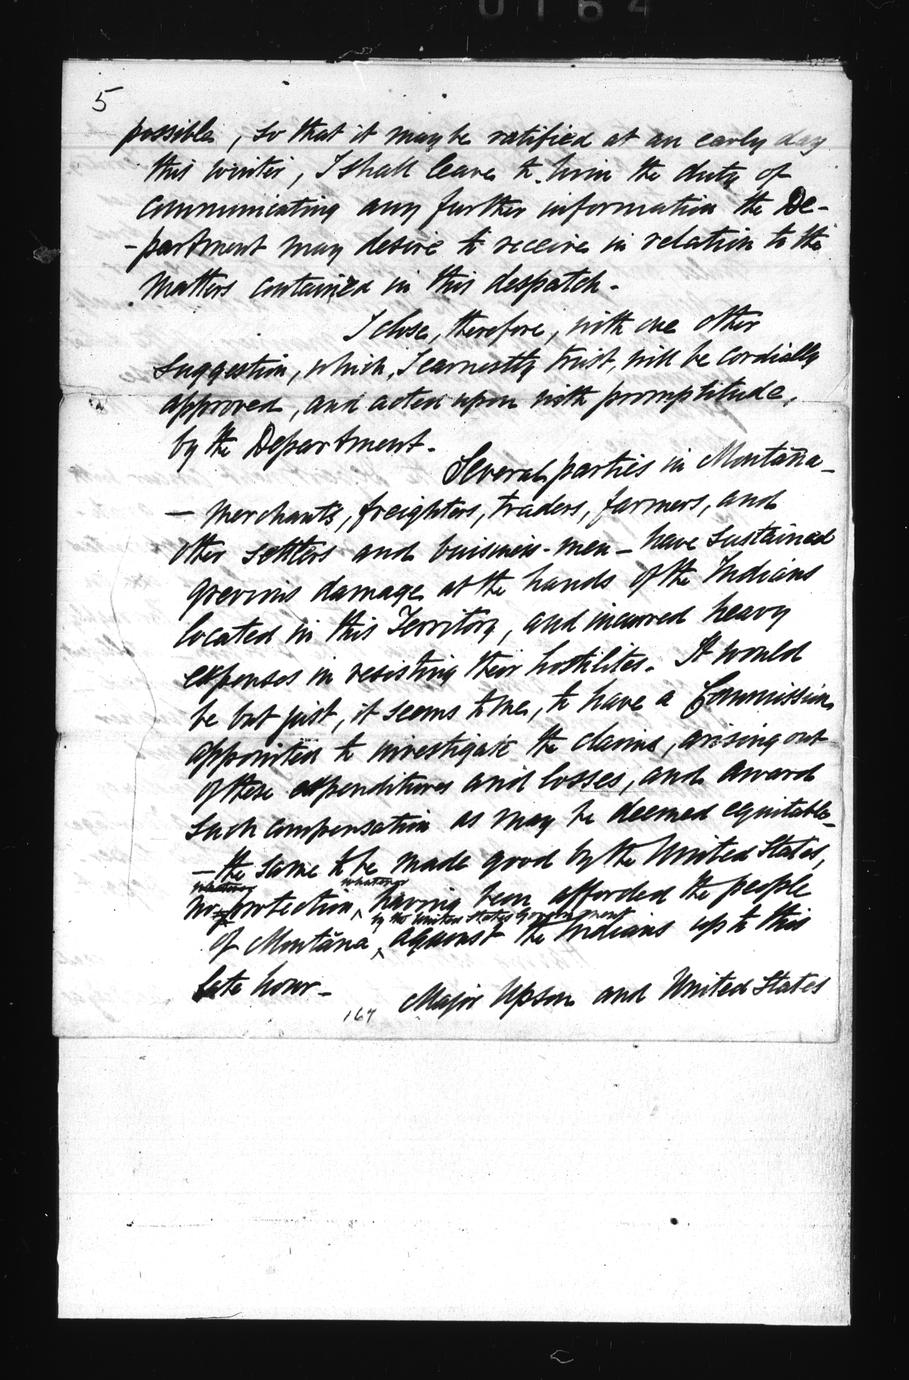 0164
5
possible, so that it may be ratified at an early day
this winter, I shall leave to him the duty of
communicating any further information the De-
-partment may desire to receive in relation to the
matters contained in this despatch.
I close, therefore, with one other
suggestion, which, I earnestly trust, will be cordially
approved, and acted upon with promptitude,
by the Department.
Several parties in Montaña-
- merchants, freighters, traders, farmers, and
other settlers and buisiness-men - have sustained
grevious damage at the hands of the Indians
located in this Territory, and incurred heavy
expenses in resisting their hostilites. It would
be but just, it seems to me, to have a Commission
appointed to investigate the claims, arising out
of these expenditures and losses, and award
such compensation as may be deemed equitable-
- the same to be made good by the United States,
whatever whatever
no protection, having been afforded the people
by the United States Government
of Montaña, against the Indians up to this
late hour -
Major Upson and United States
167